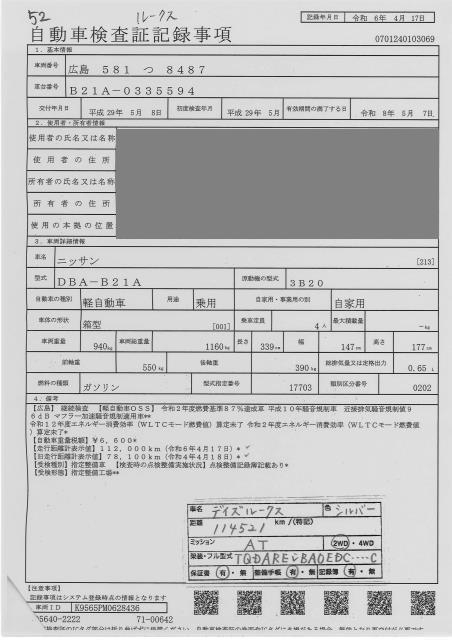 52 ルークス
記録年月日 令和 6年 4月 17日
自動車検査証記録事項
0701240103069
1．基本情報
車両番号 広島 581 つ 8487
車台番号 B21A-0335594
交付年月日 平成29年 5月 8日 初度検査年月 平成29年 5月 有効期間の満了する日 令和 8年 5月 7日
2．使用者・所有者情報
使用者の氏名又は名称
使用者の住所
所有者の氏名又は名称
所有者の住所
使用の本拠の位置
3．車両詳細情報
車名 ニッサン [213]
型式 DBA-B21A 原動機の型式 3B20
自動車の種別 軽自動車 用途 乗用 自家用・事業用の別 自家用
車体の形状 箱型 [001] 乗車定員 4人 最大積載量 -kg
車両重量 940kg 車両総重量 1160kg 長さ 339cm 幅 147cm 高さ 177cm
前軸重 550kg 後軸重 390kg 総排気量又は定格出力 0.65 L
燃料の種類 ガソリン 型式指定番号 17703 類別区分番号 0202
4．備考
【広島】 継続検査 【軽自動車OSS】 令和2年度燃費基準87%達成車 平成10年騒音規制車 近接排気騒音規制値9
6dB マフラー加速騒音規制適用車**
令和12年度エネルギー消費効率（WLTCモード燃費値）算定未了 令和2年度エネルギー消費効率（WLTCモード燃費値
）算定未了*
【自動車重量税額】￥6,600*
【走行距離計表示値】112,000km（令和6年4月17日）*
【旧走行距離計表示値】78,100km（令和4年4月18日）*
【受検種別】指定整備車 【検査時の点検整備実施状況】点検整備記録簿記載あり*
【受検形態】指定整備工場**
車名 デイズルークス 色 シルバー
距離 114521 km/(特記)
ミッション AT 2WD・4WD
架装・フル型式
保証書 有・無 整備手帳 有・無 記録簿 有・無
【注意事項】
記録事項はシステム登録時点の情報となります
車両ID K9565PM0628436
05640-2222 71-00642